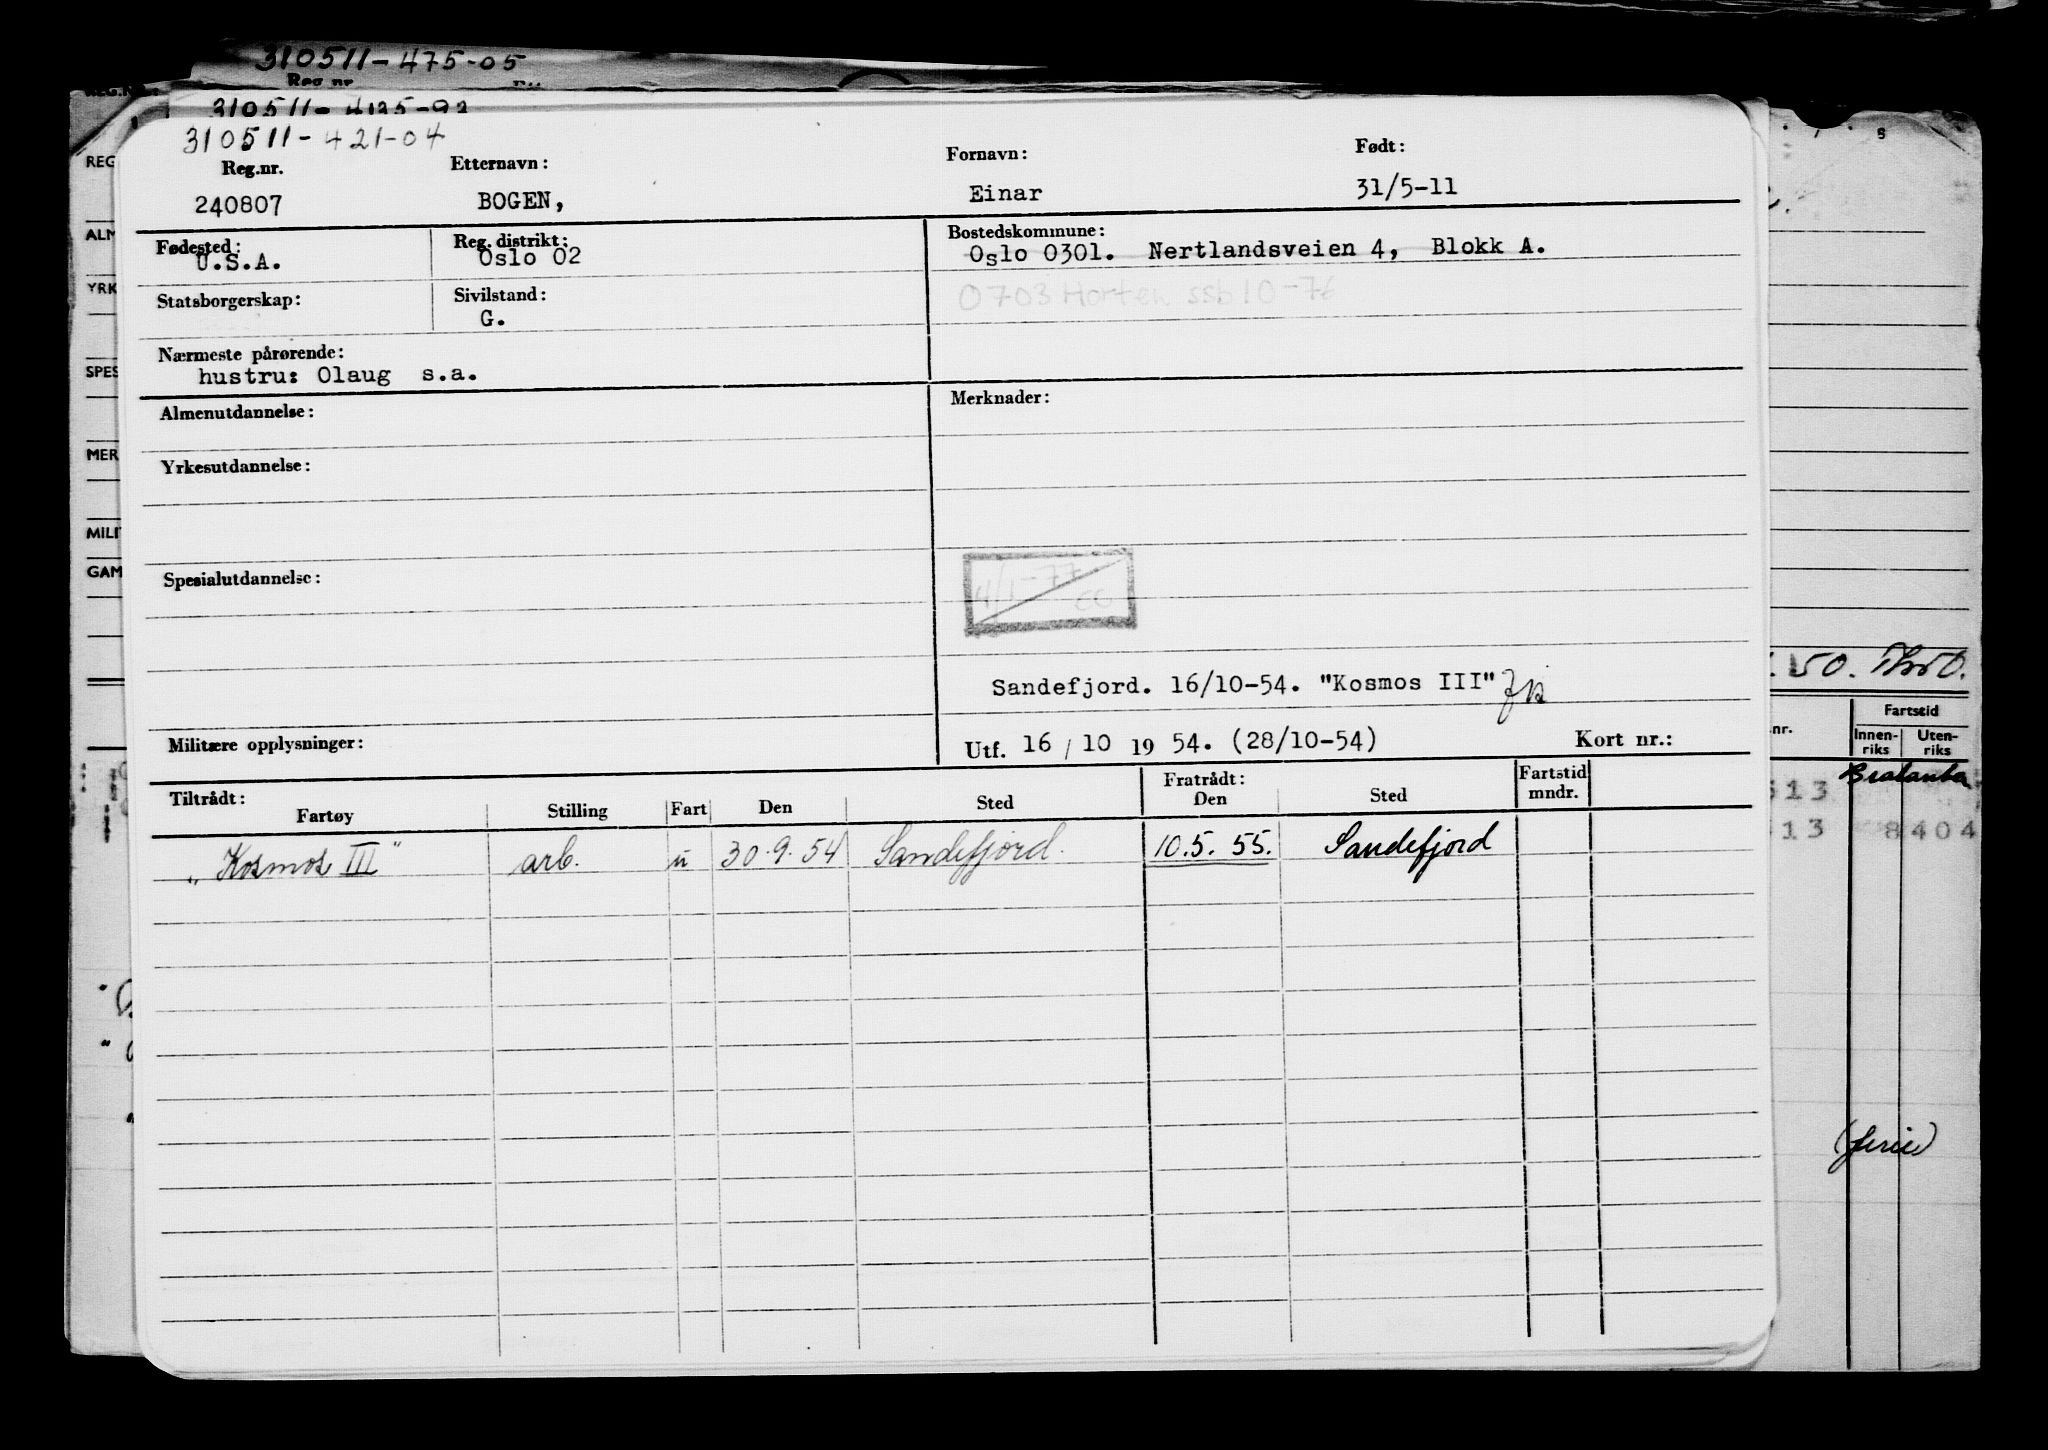 310511-475-05
Reg.nr.
310511-4135-92
310511-421-04
Reg.nr. Etternavn: Fornavn: Født:
240807 BOGEN, Einar 31/5-11
Fødested: Reg. distrikt: Bostedskommune:
U.S.A. Oslo 02 Oslo 0301. Nertlandsveien 4, Blokk A.
Statsborgerskap: Sivilstand: 0703 Horten ssb 10-76
G.
Nærmeste pårørende:
hustru: Olaug s.a.
Almenutdannelse: Merknader:
Yrkesutdannelse:
Spesialutdannelse: 4/1-77
Sandefjord. 16/10-54. "Kosmos III"
Militære opplysninger: Utf. 16/10 19 54. (28/10-54) Kort nr.:
Tiltrådt: Fratrådt: Fartstid
Fartøy Stilling Fart Den Sted Den Sted mndr.
"Kosmos III" arb. u 30.9.54 Sandefjord. 10.5.55. Sandefjord
REG
ALM
YRK
SPES
MER
MILI
GAM
Fartstid
nr. Innen- Uten-
riks riks
513
513 8404
(ferie)